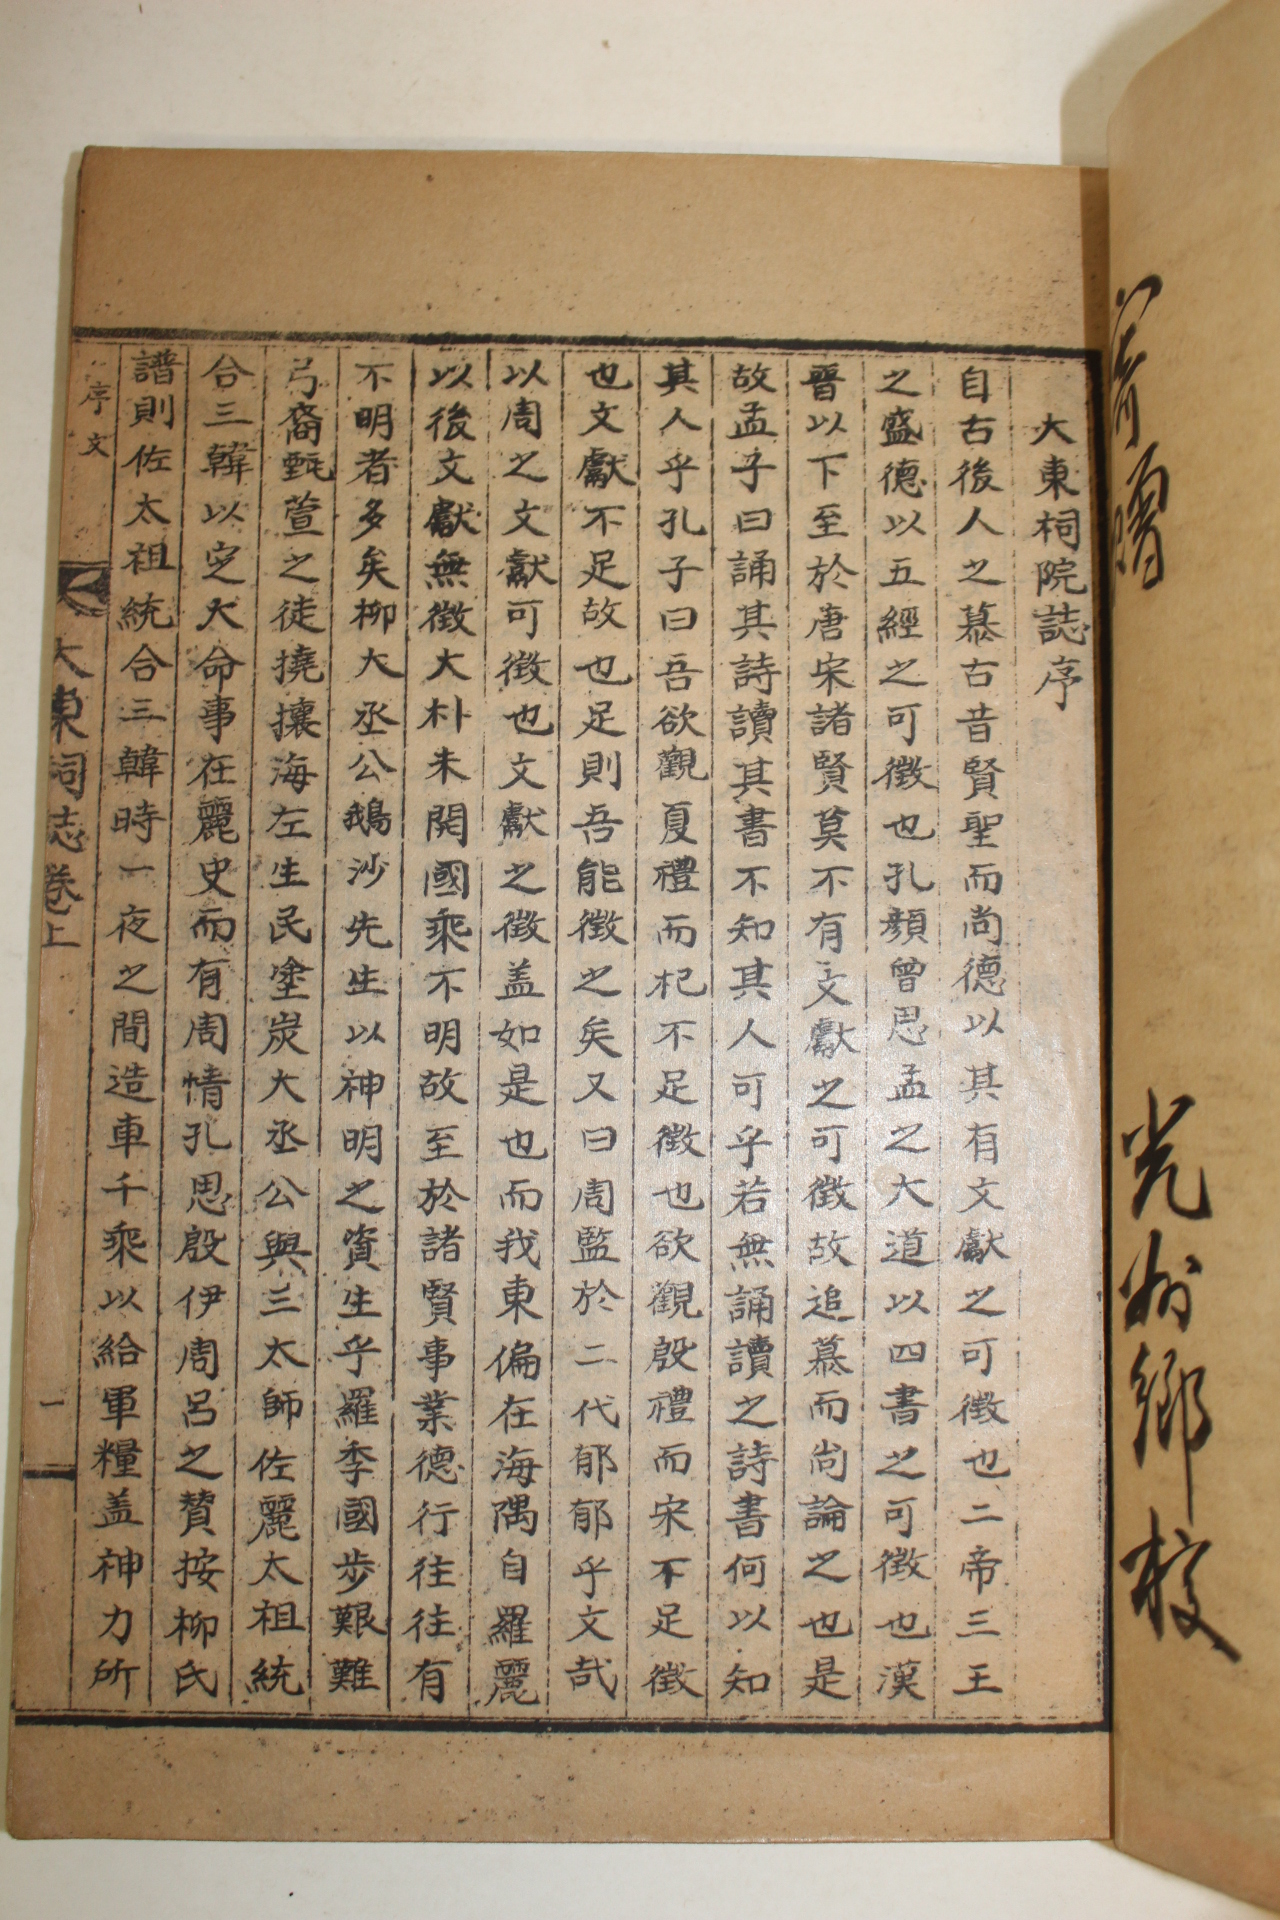 光州鄕校
大東祠院誌序
自古後人之慕古昔賢聖而尚德以其有文獻之可徵也二帝三王
之盛德以五經之可徵也孔顏曾思孟之大道以四書之可徵也漢
晉以下至於唐宋諸賢莫不有文獻之可徵故追慕而尙論之也是
故孟子曰誦其詩讀其書不知其人可乎若無誦讀之詩書何以知
其人乎孔子曰吾欲觀夏禮而杞不足徵也欲觀殷禮而宋不足徵
也文獻不足故也足則吾能徵之矣又曰周監於二代郁郁乎文哉
以周之文獻可徵也文獻之徵盖如是也而我東偏在海隅自羅麗
以後文獻無徵大朴未開國乘不明故至於諸賢事業德行往往有
不明者多矣柳大丞公鵝沙先生以神明之資生乎羅季國步艱難
弓裔甄萱之徒撓攘海左生民塗炭大丞公與三太師佐麗太祖統
合三韓以定大命事在麗史而有周情孔思殷伊周呂之贊按柳氏
譜則佐太祖統合三韓時一夜之間造車千乘以給軍糧盖神力所
序文
大東祠志卷上
一